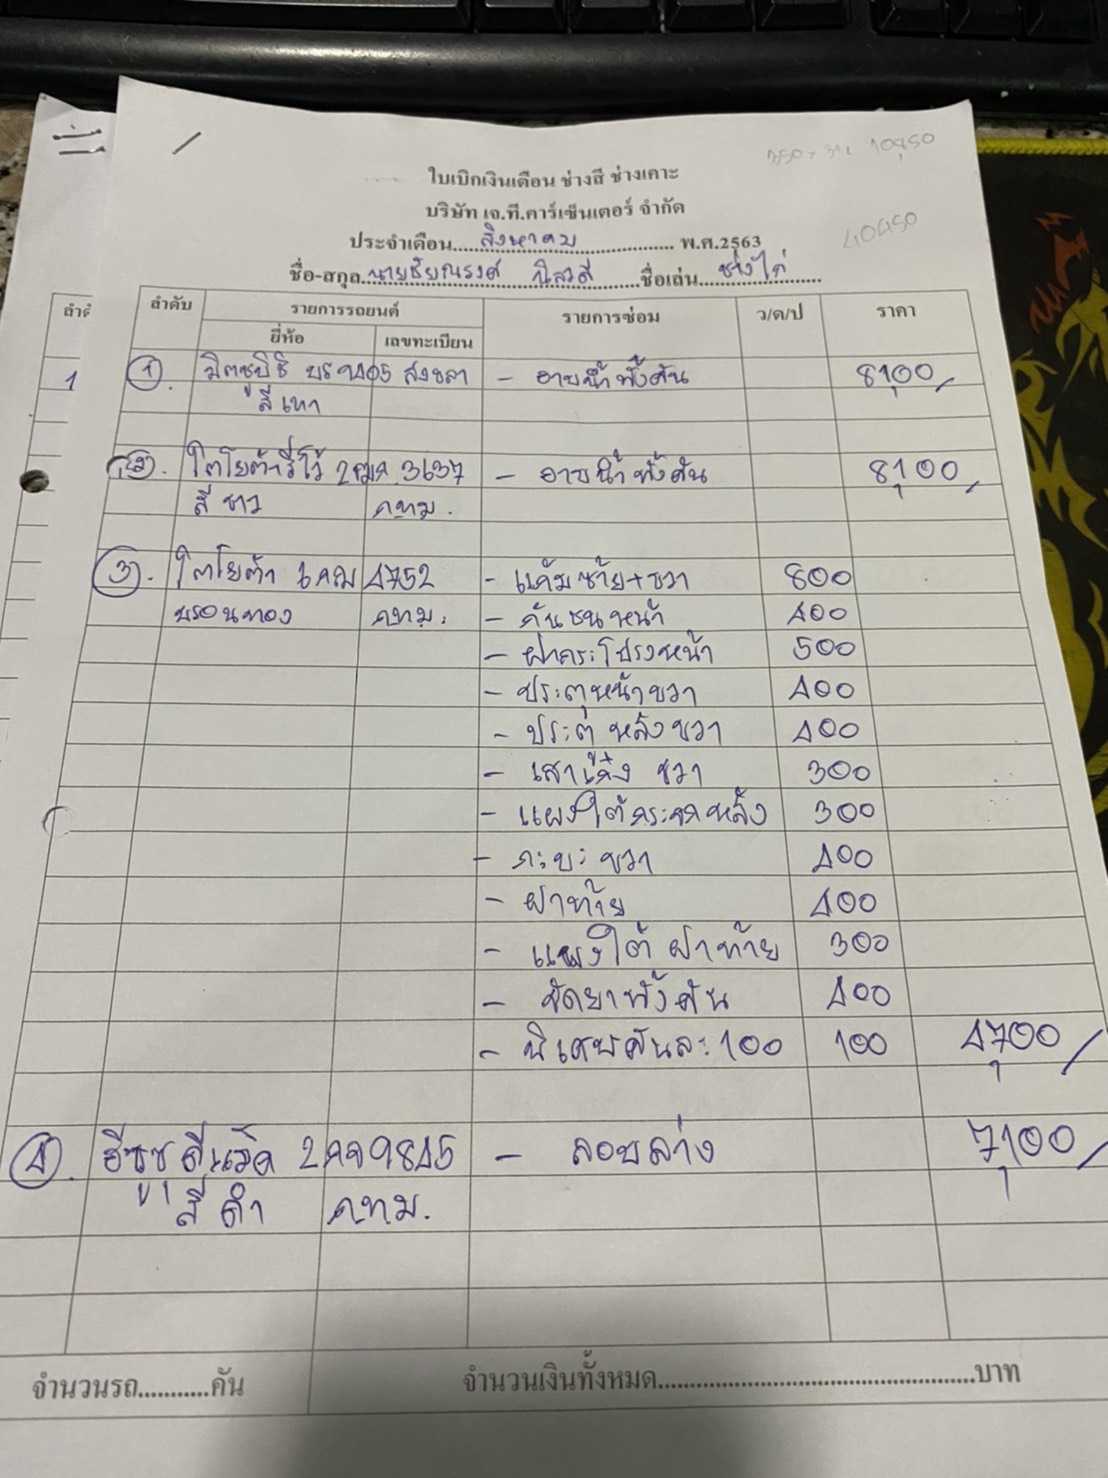 350 × 31 = 10850
ใบเบิกเงินเดือน ช่างสี ช่างเคาะ
บริษัท เจ.ที.คาร์เซ็นเตอร์ จำกัด
40450
ประจำเดือน....สิงหาคม.................. พ.ศ.2563
ชื่อ-สกุล..นายชัยณรงค์ ......ชื่อเล่น...ช่างไก่......
ลำดับ รายการรถยนต์ รายการซ่อม ว/ด/ป ราคา
ยี่ห้อ เลขทะเบียน
1 ①. มิตซูบิชิ บร 9405 สงขลา - อาบน้ำทั้งคัน 8,100/
สีเทา
②. โตโยต้ารีโว้ 2ฒค 3637 - อาบน้ำทั้งคัน 8,100/
สีขาว กทม.
③. โตโยต้า 4752 - แก้มซ้าย+ขวา 800
บรอนทอง กทม. - กันชนหน้า 400
- ฝากระโปรงหน้า 500
- ประตูหน้าขวา 400
- ประตูหลังขวา 400
- เสาเก๋ง ขวา 300
- แผงใต้กระจกหลัง 300
- กะบะ ขวา 400
- ฝาท้าย 400
- แผงใต้ ฝาท้าย 300
- ขัดยาทั้งคัน 400
- พิเศษคันละ 100 100 4,700/
④. อีซูซุดีแม็ค 9845 - ลอบล่าง 7,100/
สีดำ กทม.
จำนวนรถ...........คัน จำนวนเงินทั้งหมด................................................บาท